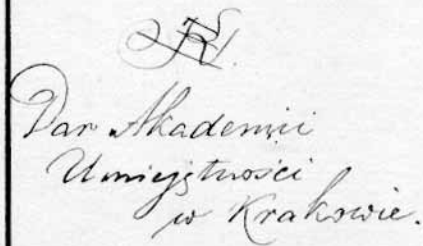 Dar Akademii
Umiejętności
w Krakowie.